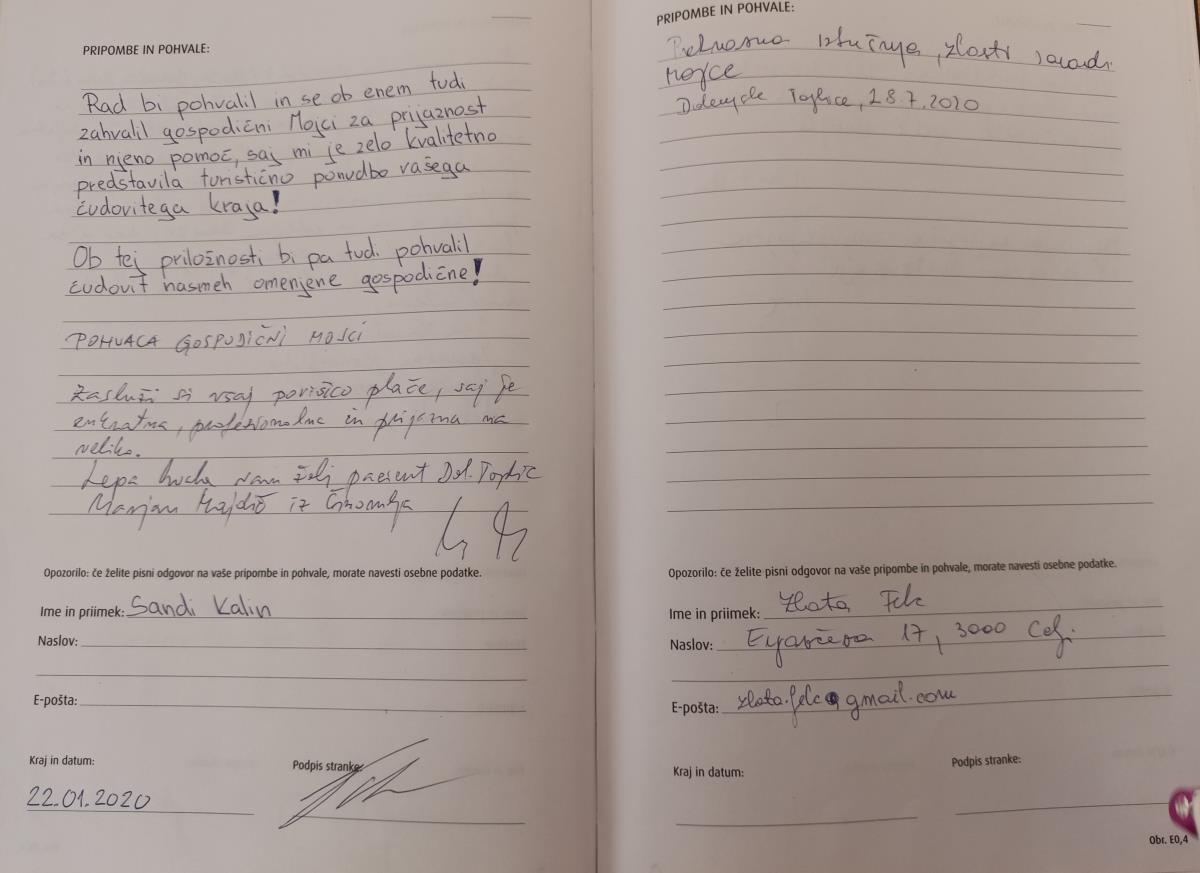 PRIPOMBE IN POHVALE:
Rad bi pohvalil in se ob enem tudi
zahvalil gospodični Mojci za prijaznost
in njeno pomoč, saj mi je zelo kvalitetno
predstavila turistično ponudbo vašega
čudovitega kraja!
Ob tej priložnosti bi pa tudi pohvalil
čudovit nasmeh omenjene gospodične!
POHVALA GOSPODIČNI MOJCI
Zasluži si vsaj povišico plače, saj je
profesionalna in prijazna na
veliko.
Lepa vam želi pacient Dol. Toplic
Marjan iz Črnomlja
Opozorilo: če želite pisni odgovor na vaše pripombe in pohvale, morate navesti osebne podatke.
Ime in priimek: Sandi Kalin
Naslov:
E-pošta:
Kraj in datum:
Podpis stranke:
22.01.2020
PRIPOMBE IN POHVALE:
izkušnja, zlasti zaradi
Mojce
Dolenjske Toplice, 28.7.2020
Opozorilo: če želite pisni odgovor na vaše pripombe in pohvale, morate navesti osebne podatke.
Ime in priimek: Zlata Felc
Naslov: 17, 3000 Celje
E-pošta: zlata.felc@gmail.com
Kraj in datum:
Podpis stranke:
Obr. E0,4